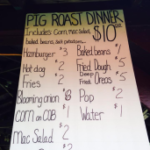 PIG ROAST DINNER
Includes Corn, mac salad,
baked beans, salt potatoes... $10
Hamburger $3
Hot dog $2
Fries $2
Blooming onion $8
CORN on COB $1
Mac Salad $2
Baked beans $1
Fried Dough $5
Fried Oreos $5
Pop $2
Water $1